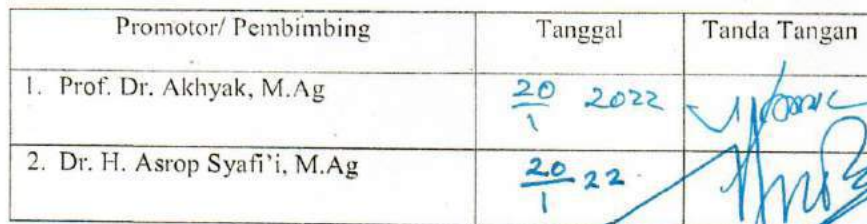 Promotor/ Pembimbing Tanggal Tanda Tangan
1. Prof. Dr. Akhyak, M.Ag 20/1 2022
2. Dr. H. Asrop Syafi'i, M.Ag 20/1 22